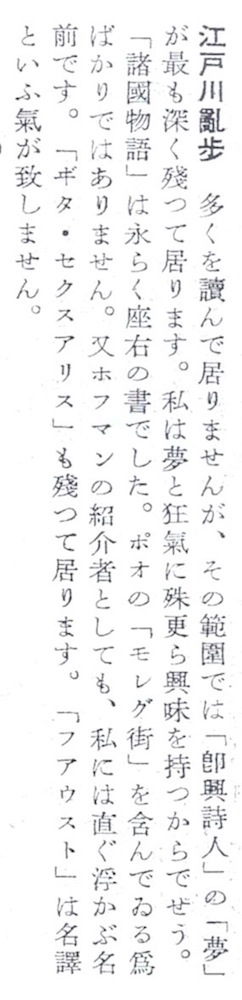 江戸川亂歩　多くを讀んで居りませんが、その範圍では「卽興詩人」の「夢」
が最も深く殘つて居ります。私は夢と狂氣に殊更ら興味を持つからでせう。
「諸國物語」は永らく座右の書でした。ポオの「モレグ街」を含んでゐる爲
ばかりではありません。又ホフマンの紹介者としても、私には直ぐ浮かぶ名
前です。「ヰタ・セクスアリス」も殘つて居ります。「フアウスト」は名譯
といふ氣が致しません。